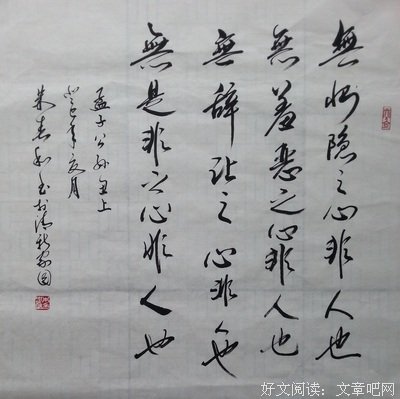 無恻隐之心非人也
無羞惡之心非人也
無辞让之心非人也
無是非之心非人也
孟子公孙丑上
癸巳年夏月
朱
家园
好文阅读：文章吧网